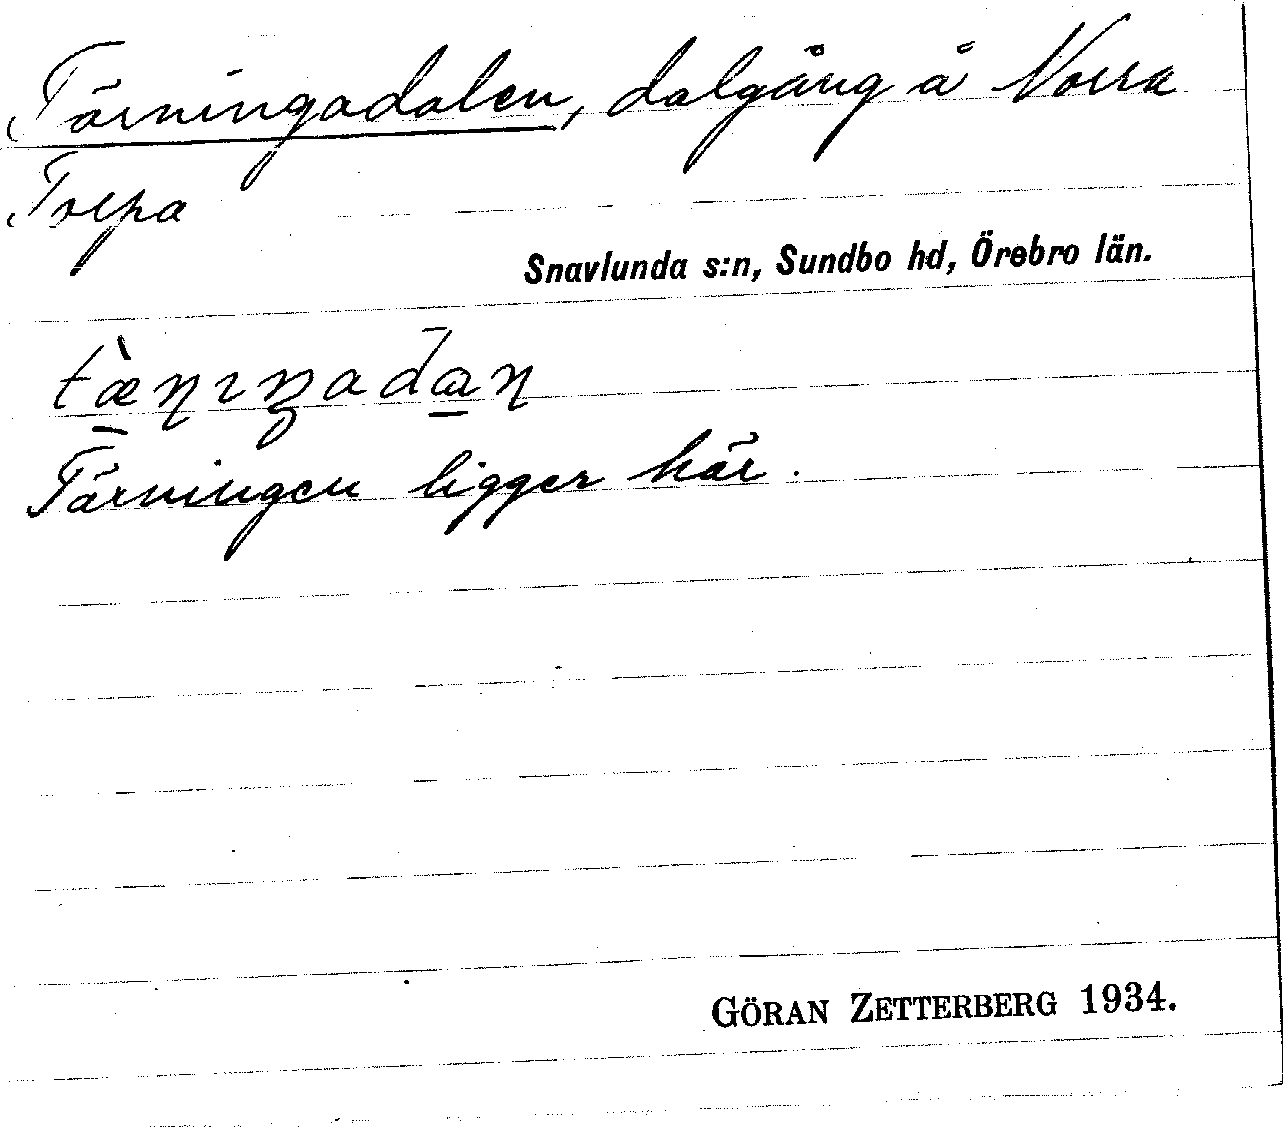 Tärningadalen, dalgång å Norra
Torpa
Snavlunda s:n, Sundbo hd, Örebro län.
Tärningen ligger här.
GÖRAN ZETTERBERG 1934.